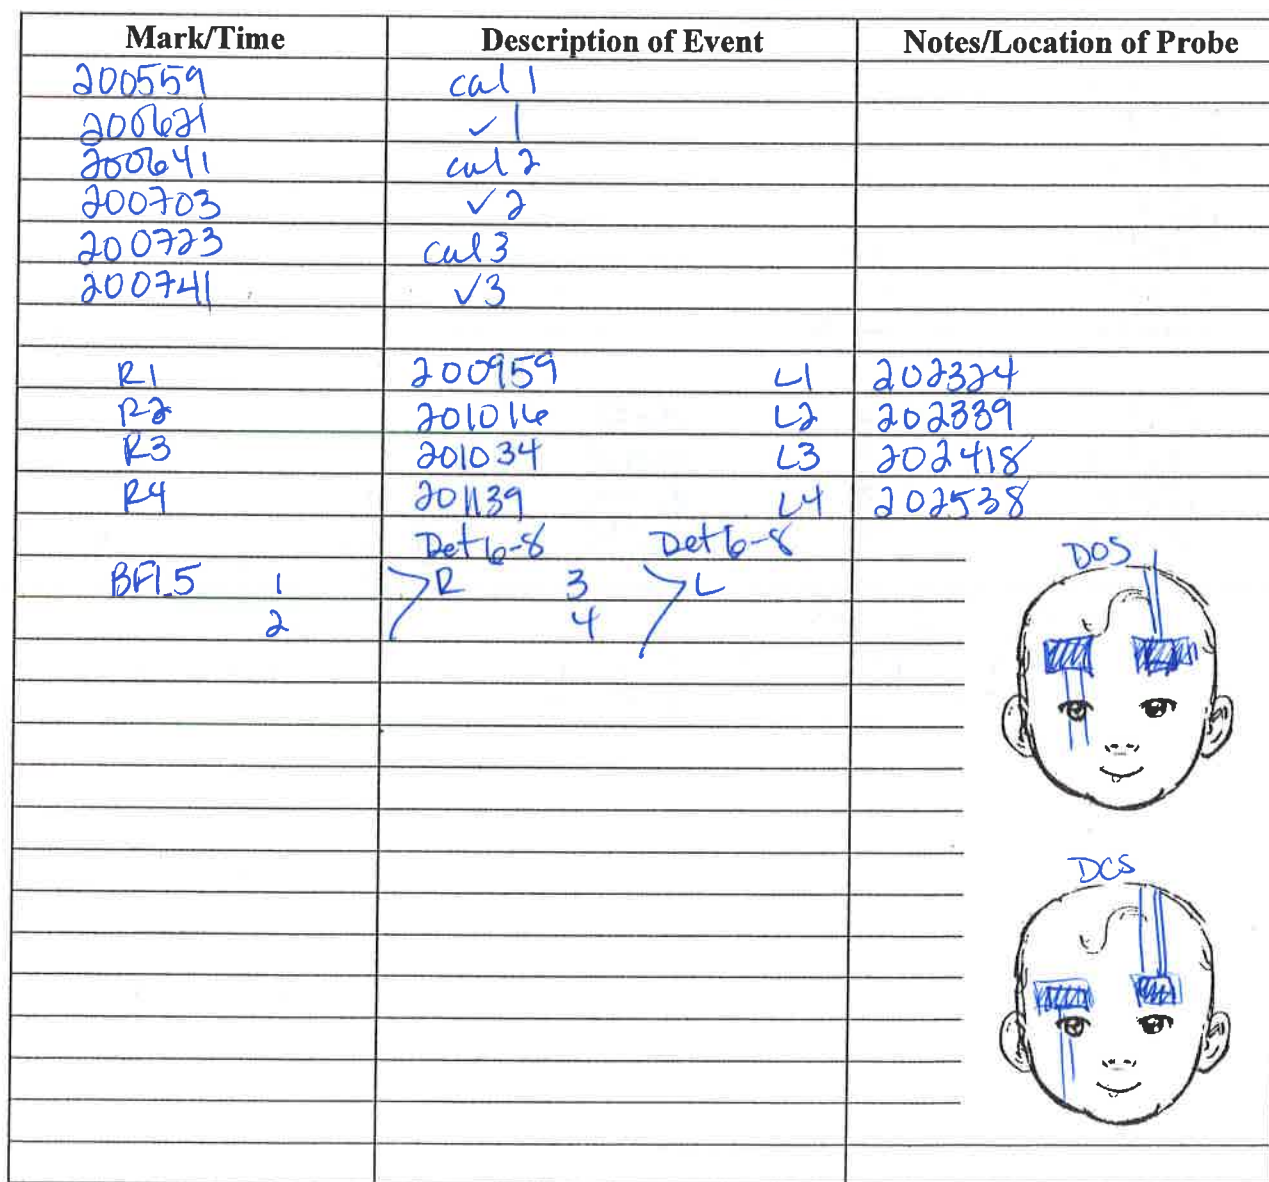 Mark/Time Description of Event Notes/Location of Probe
200559 cal 1
200621 ✓ 1
200641 cal 2
200703 ✓ 2
200723 cal 3
200741 ✓ 3
R1 200959 L1 202324
R2 201016 L2 202339
R3 201034 L3 202418
R4 201139 L4 202538
Det 6-8 Det 6-8
DOS
BFI_5 1 > R 3 > L
2 4
DCS